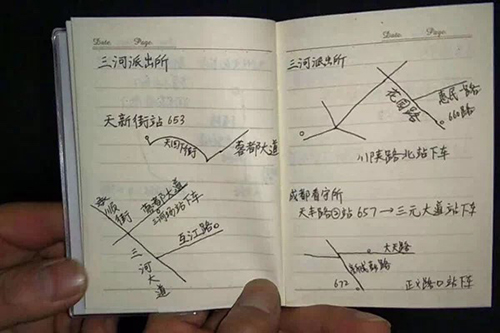 Date. Page.
三河派出所
天新街站 653
天回下街
蓉都大道
顺街
蓉都大道
站下车
互江路
三河大道
Date. Page.
三河派出所
花园路
惠民路
66路
川陕路北站下车
成都看守所
天丰路②站 657→三元大道站下车
大天路
672
正义路口站下车